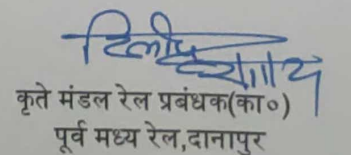 दिलीप कुमार
कृते मंडल रेल प्रबंधक(का०)
पूर्व मध्य रेल,दानापुर